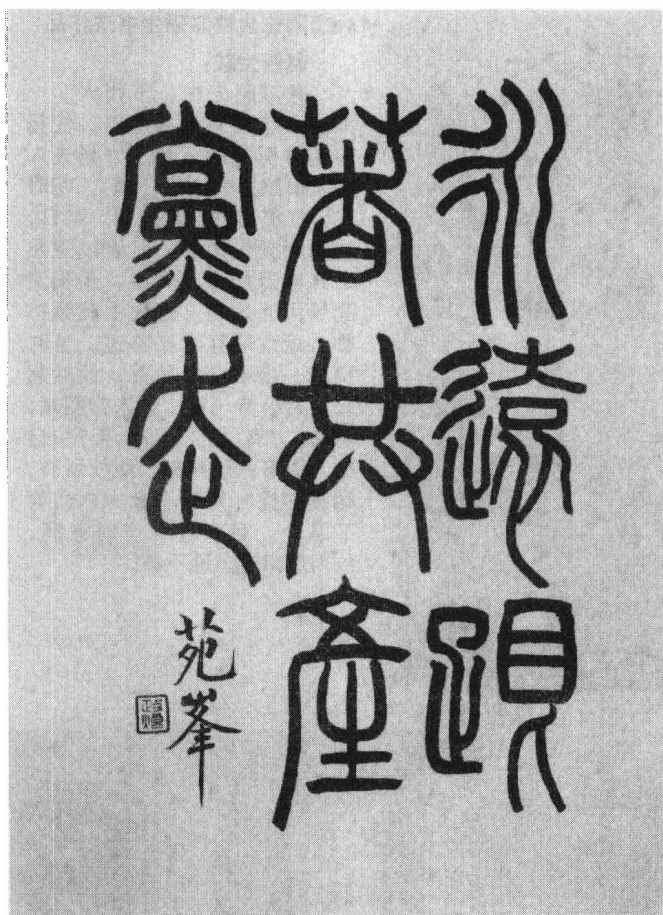 永遠跟
著共產
黨走
苑峯